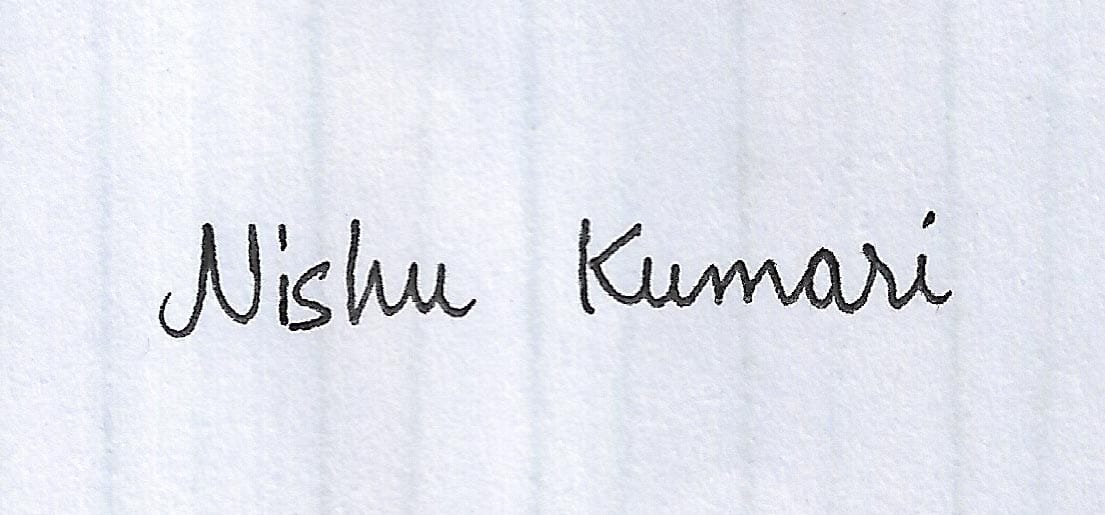 Nishu Kumari